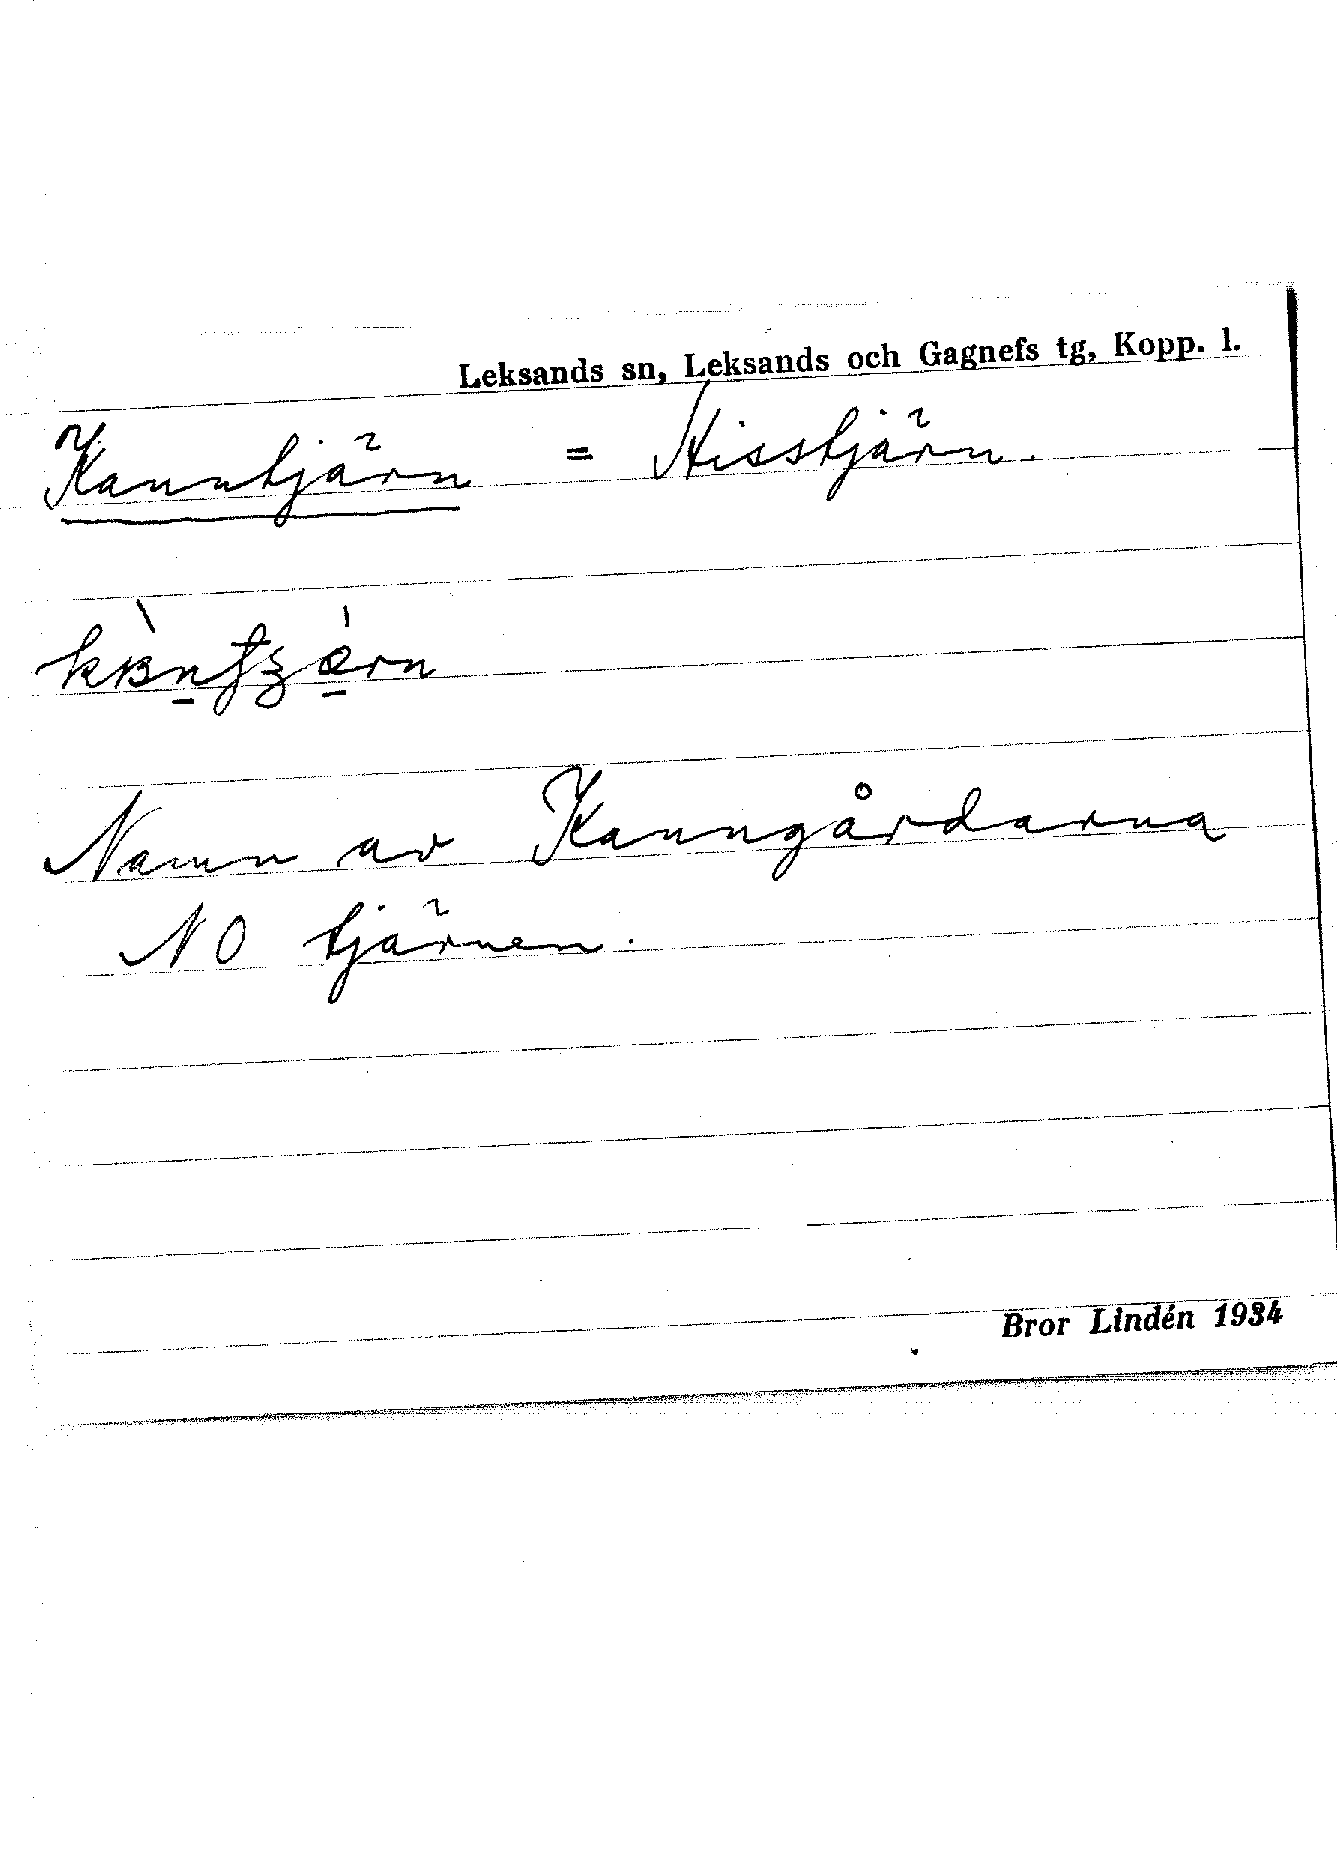 Leksands sn, Leksands och Gagnefs tg, Kopp. l.
Kanntjärn = Hisstjärn.
Namn av Kanngårdarna
NO tjärnen.
Bror Lindén 1934